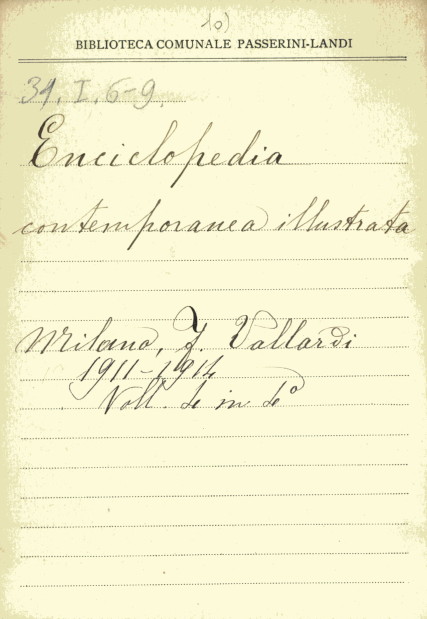 10)
BIBLIOTECA COMUNALE PASSERINI-LANDI
31. I. 6-9.
Enciclopedia
contemporanea illustrata
Milano, F. Vallardi
1911-1914
Voll. 4 in 4°